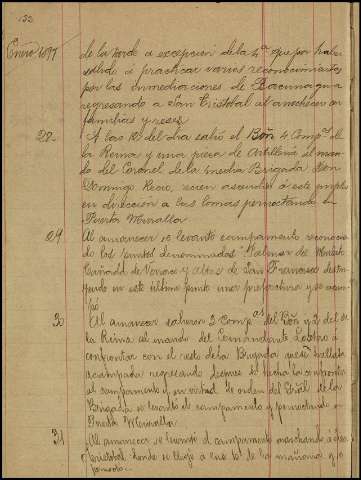 132
Enero 1897
de la tarde a excepción de la 4ª que por haber
salido a practicar varios reconocimientos
por las inmediaciones de
regresando a San Cristobal al amanecer con
familias y reses.
28 A las 12 del dia salió el Bón 4 Compª de
la Reina y una pieza de Artillería al man
do del Coronel de la media Brigada Don
Domingo Recio, recien ascendido a este empleo
en dirección a las lomas pernoctando en
Puerta Muralla
29 Al amanecer se levantó campamento reconocien
do los denominados del
Cañada de y Altos de San Francisco destru
yendo en este último punto una prefectura y se acam
pó
30 Al amanecer salieron 2 Compªs del Bón y 2 del de
la Reina al mando del Comandante a
con el resto de la Brigada
acampada, regresando
al campamento y en virtud de orden del Gral de la
Brigada se levantó el campamento y pernoctando en
Puerta Muralla.
31 Al amanecer se levantó el campamento marchando á San
Cristobal, donde se llegó a las 10 de la mañana y se